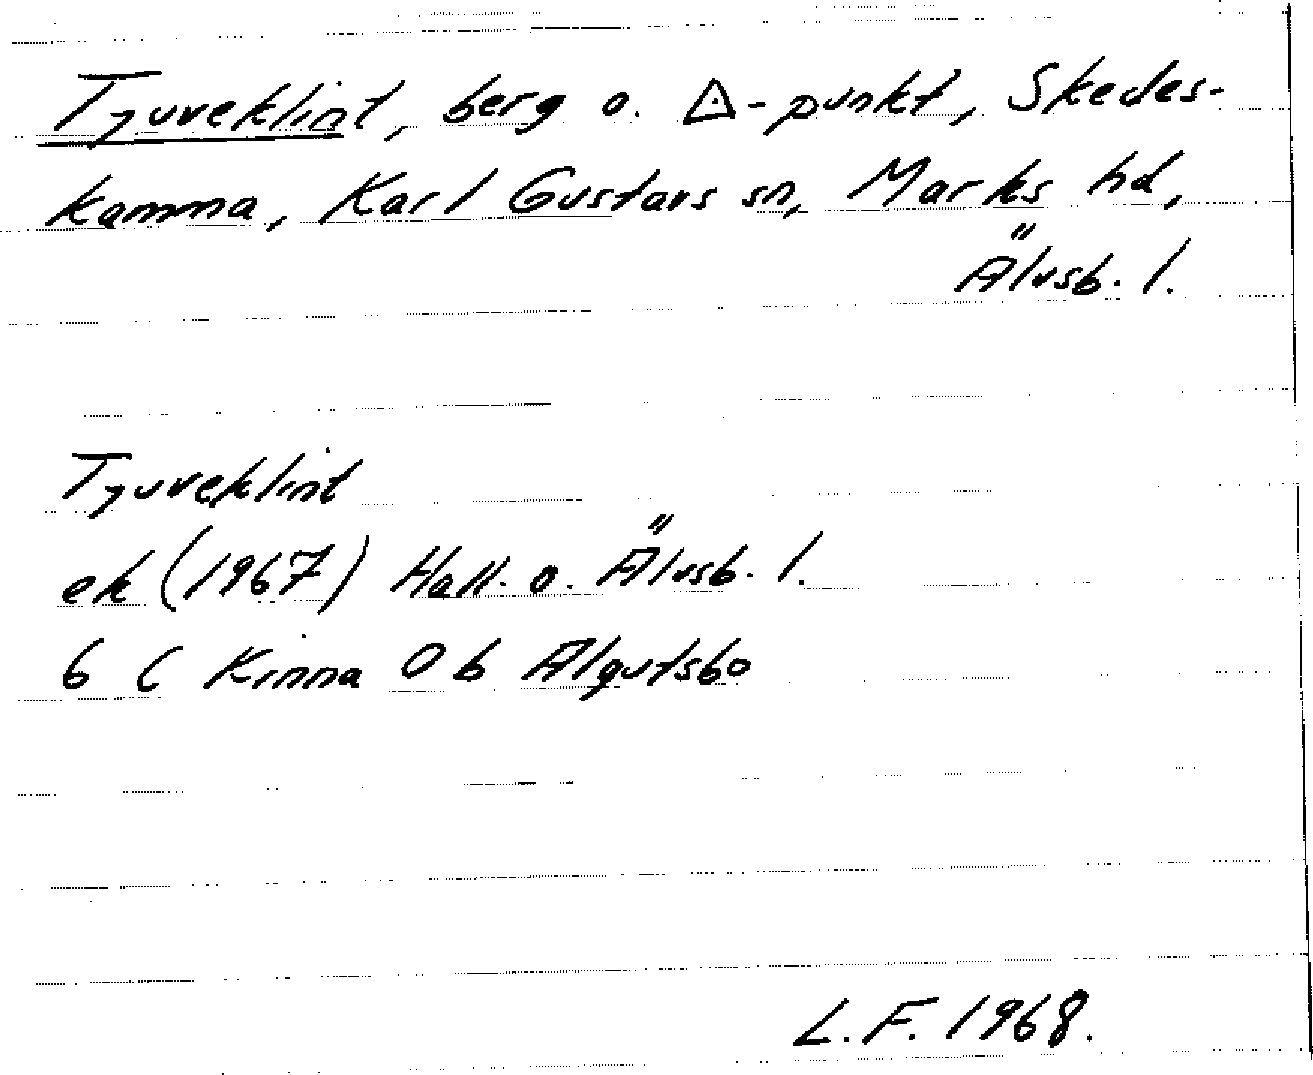 Tjuveklint, berg o. △-punkt, Skedes-
kamma, Karl Gustavs sn, Marks hd,
Älvsb. l.
Tjuveklint
ek (1967) Hall. o. Älvsb. l.
6 C Kinna 0 b Älgutsbo
L.F. 1968.